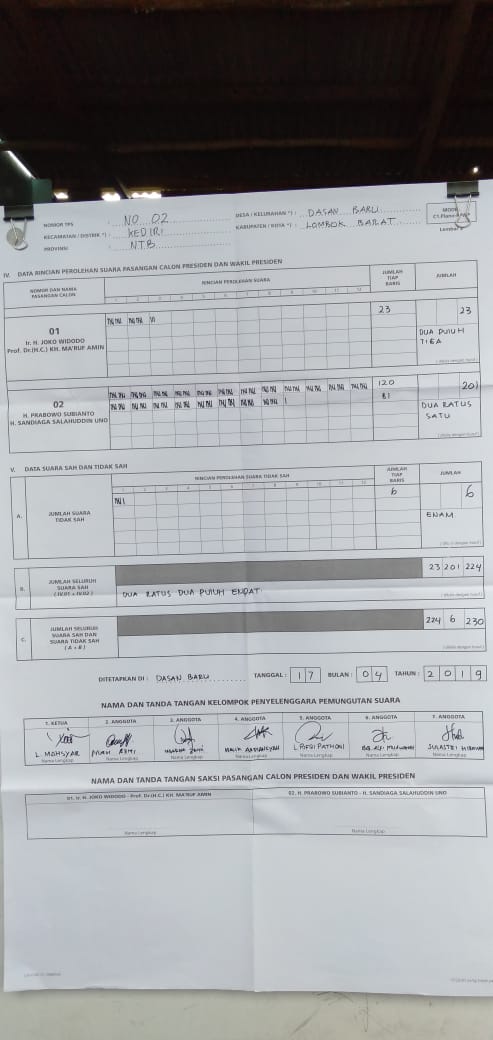 MODEL
C1.Plano-PPWP
Lembar 2
NOMOR TPS : NO 02
DESA / KELURAHAN *) : DASAN BARU
KECAMATAN / DISTRIK *) : KEDIRI
KABUPATEN / KOTA *) : LOMBOK BARAT
PROVINSI : NTB
IV. DATA RINCIAN PEROLEHAN SUARA PASANGAN CALON PRESIDEN DAN WAKIL PRESIDEN
NOMOR DAN NAMA PASANGAN CALON
RINCIAN PEROLEHAN SUARA
1 2 3 4 5 6 7 8 9 10 11 12
JUMLAH TIAP BARIS
JUMLAH
01
Ir. H. JOKO WIDODO
Prof. Dr.(H.C.) KH. MA'RUF AMIN
23
23
DUA PULUH
TIGA
02
H. PRABOWO SUBIANTO
H. SANDIAGA SALAHUDDIN UNO
120
81
201
DUA RATUS
SATU
V. DATA SUARA SAH DAN TIDAK SAH
RINCIAN PEROLEHAN SUARA TIDAK SAH
1 2 3 4 5 6 7 8 9 10 11 12
JUMLAH TIAP BARIS
JUMLAH
A.
JUMLAH SUARA
TIDAK SAH
6
6
ENAM
B.
JUMLAH SELURUH
SUARA SAH
( IV.01 + IV.02 )
23 201 224
DUA RATUS DUA PULUH EMPAT
C.
JUMLAH SELURUH
SUARA SAH DAN
SUARA TIDAK SAH
( A + B )
224 6 230
DITETAPKAN DI : DASAN BARU TANGGAL : 1 7 BULAN : 0 4 TAHUN : 2 0 1 9
NAMA DAN TANDA TANGAN KELOMPOK PENYELENGGARA PEMUNGUTAN SUARA
1. KETUA 2. ANGGOTA 3. ANGGOTA 4. ANGGOTA 5. ANGGOTA 6. ANGGOTA 7. ANGGOTA
L. MAHSYAR
Nama Lengkap Nama Lengkap Nama Lengkap Nama Lengkap Nama Lengkap Nama Lengkap Nama Lengkap
NAMA DAN TANDA TANGAN SAKSI PASANGAN CALON PRESIDEN DAN WAKIL PRESIDEN
01. Ir. H. JOKO WIDODO - Prof. Dr.(H.C.) KH. MA'RUF AMIN
02. H. PRABOWO SUBIANTO - H. SANDIAGA SALAHUDDIN UNO
Nama Lengkap
Nama Lengkap